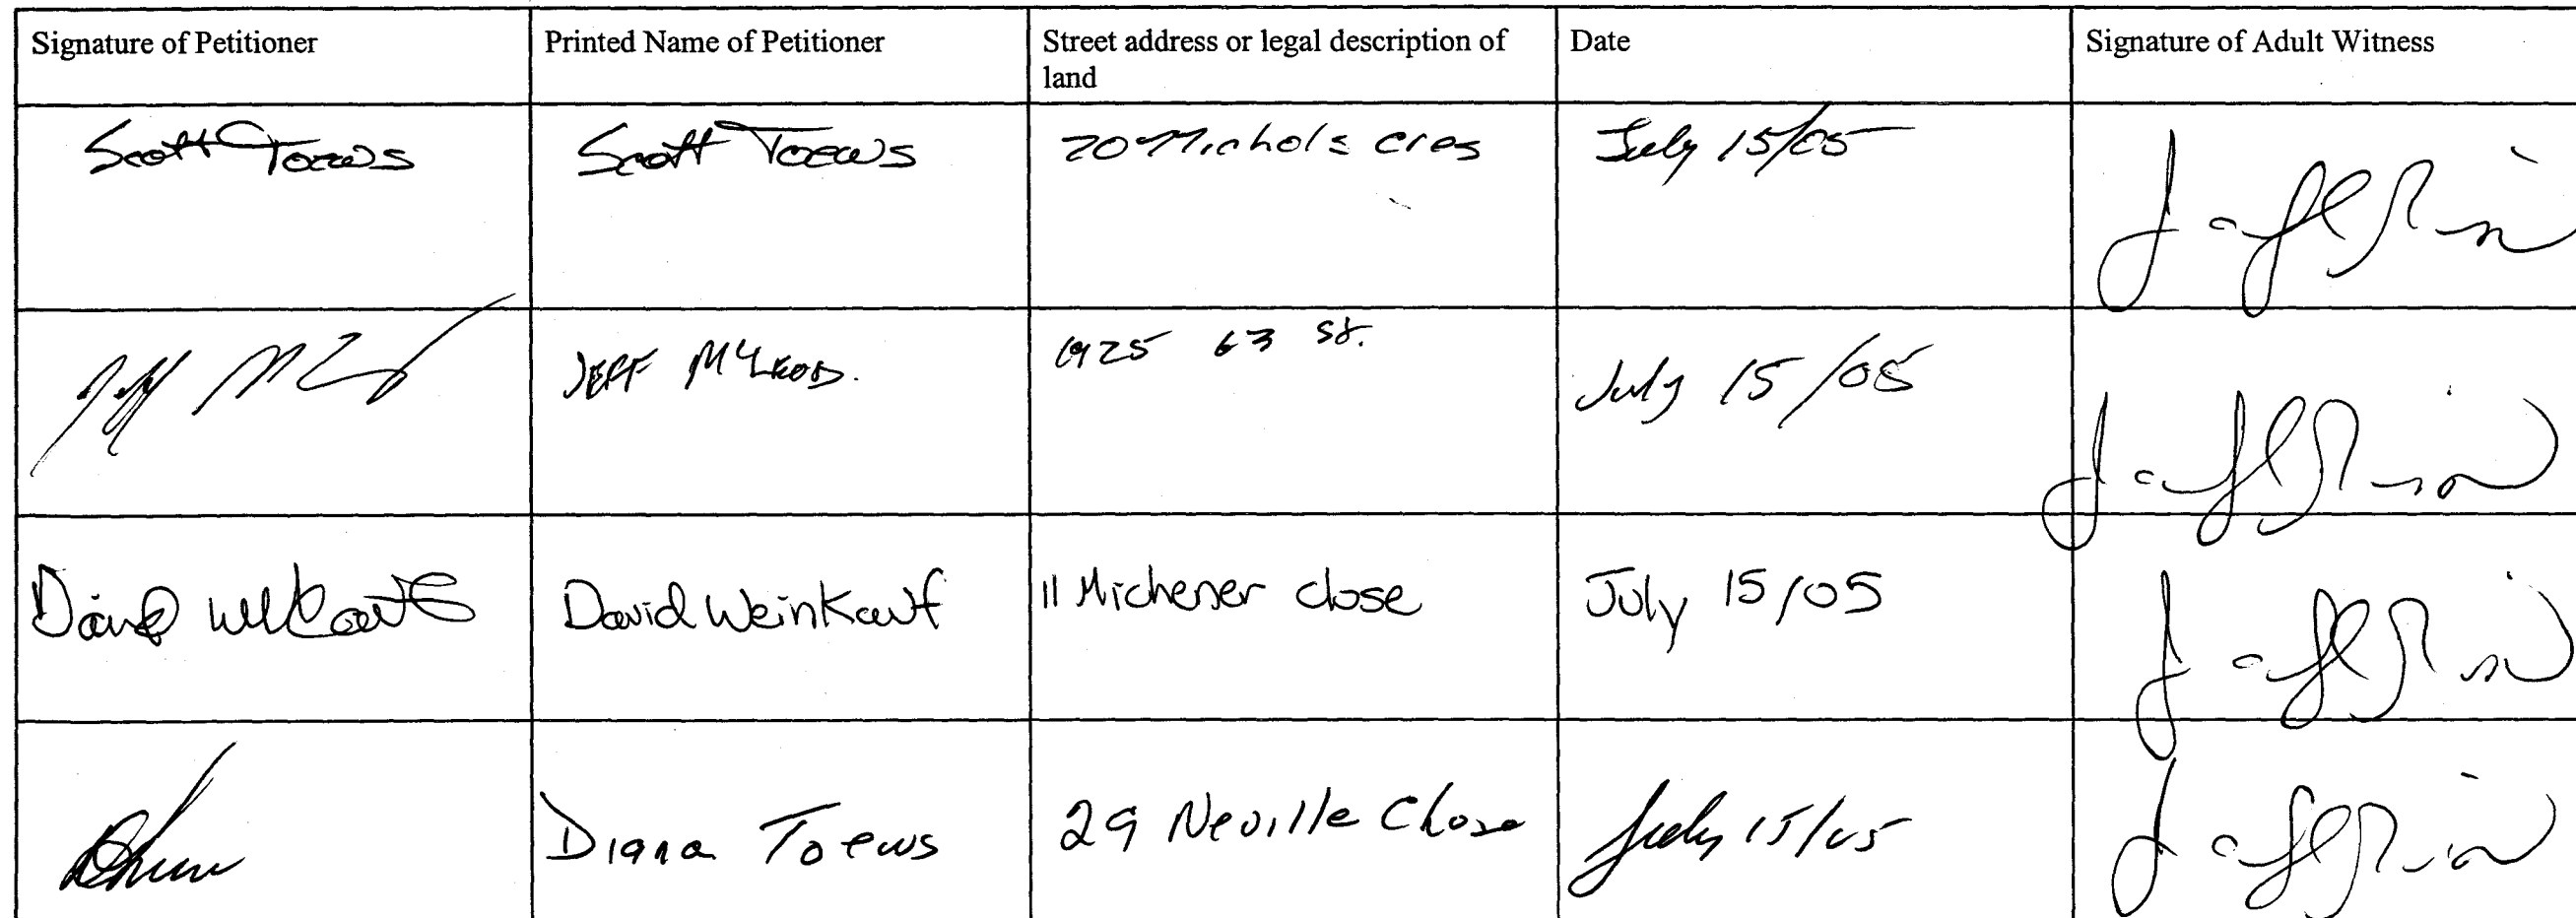 Signature of Petitioner
Printed Name of Petitioner
Street address or legal description of
land
Date
Signature of Adult Witness
Scott Toews
Scott Toews
70 Nichols cres
July 15/05
JEFF McLEOD.
1925 63 St.
July 15/05
David Weinkauf
11 Michener close
July 15/05
Diana Toews
29 Neville Close
July 15/05